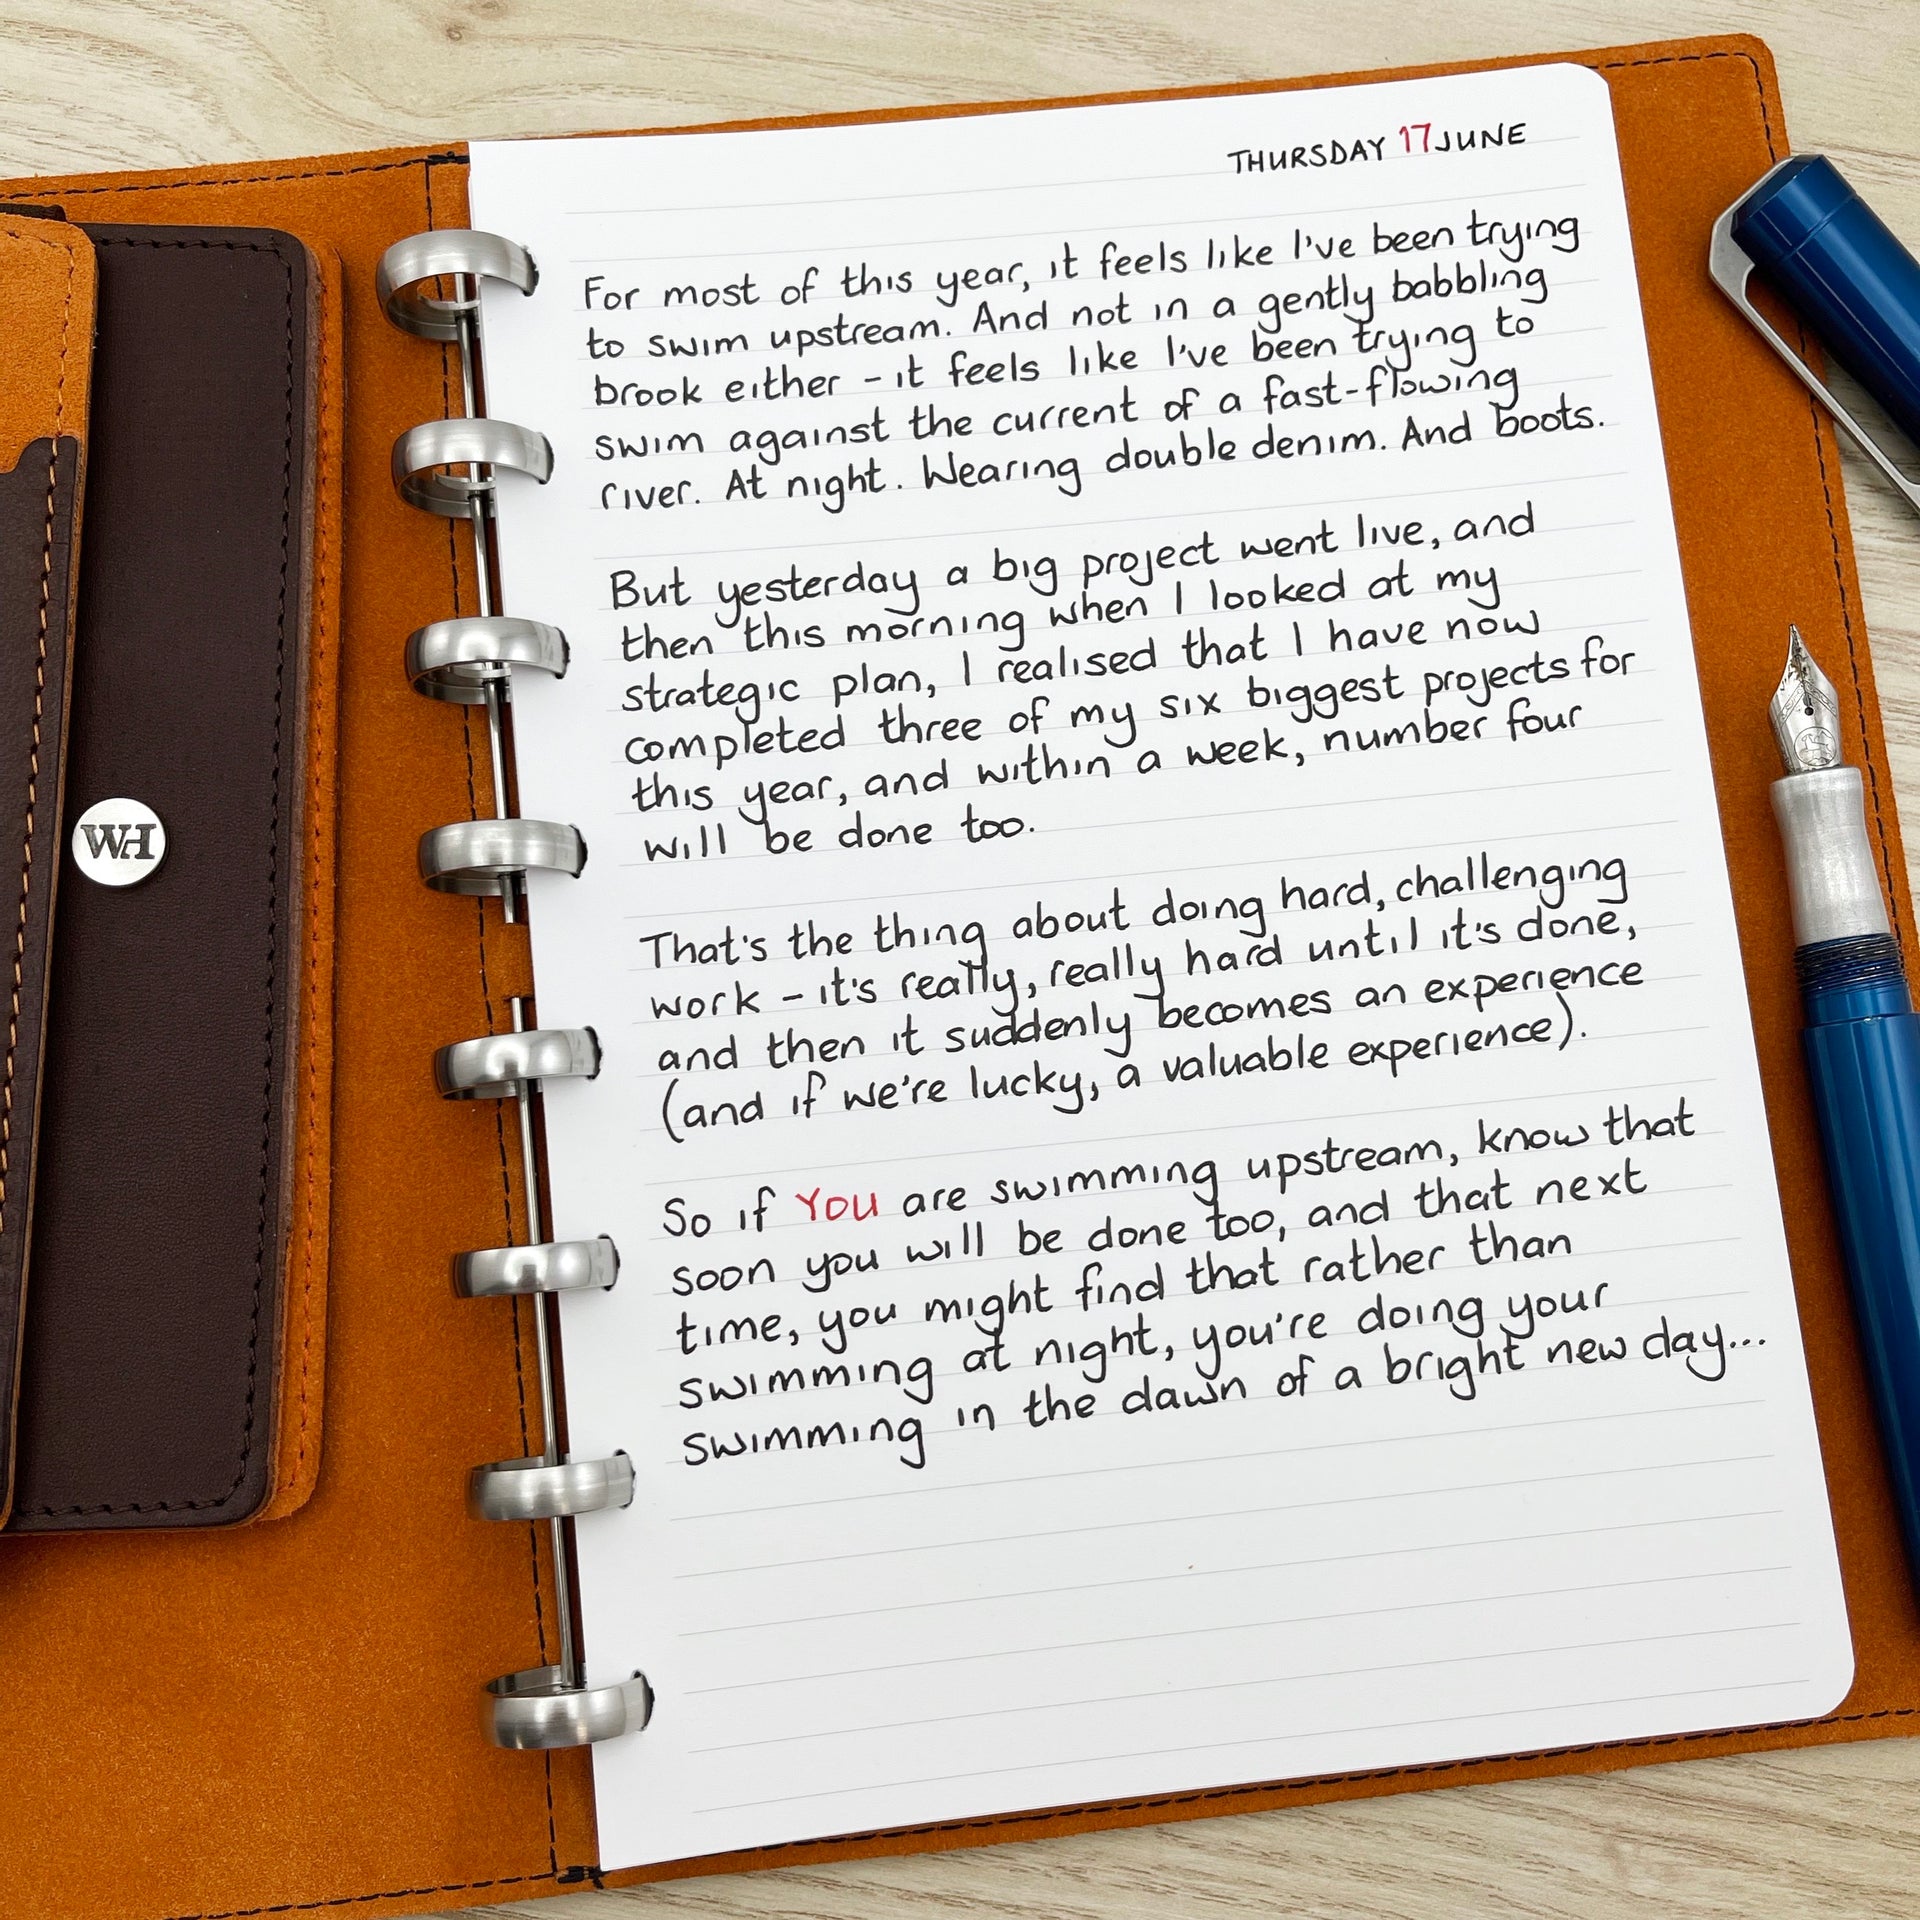 THURSDAY 17 JUNE
For most of this year, it feels like I've been trying
to swim upstream. And not in a gently babbling
brook either - it feels like I've been trying to
swim against the current of a fast-flowing
river. At night. Wearing double denim. And boots.
But yesterday a big project went live, and
then this morning when I looked at my
strategic plan, I realised that I have now
completed three of my six biggest projects for
this year, and within a week, number four
will be done too.
That's the thing about doing hard, challenging
work - it's really, really hard until it's done,
and then it suddenly becomes an experience
(and if we're lucky, a valuable experience).
So if YOU are swimming upstream, know that
soon you will be done too, and that next
time, you might find that rather than
swimming at night, you're doing your
swimming in the dawn of a bright new day...
WH